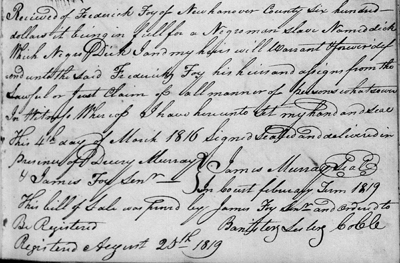 Received of Frederick Foy of Newhanover County Six hundred
dollars it being in full for a Negroman Slave Named dick
Which Negro Dick I and my heirs will Warrant & forever def
end unto the Said Frederick Foy his heirs and assigns from the
Lawful or Just Claim of all manner of persons whatsoever
In Witness Whereof I have hereunto Set my hand and Seal
This 4th day of March 1816 Signed Sealed and delivered in
Presence of Dewry Murray
& James Foy Senr James Murray Seal
In Court february Term 1819
This bill of Sale was proved by James Foy Senr and ordered to
Be Registered
Registered August 25th 1819